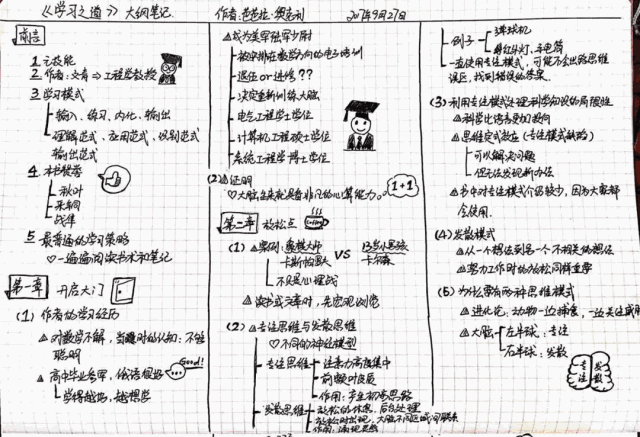 《学习之道》大纲笔记
作者:芭芭拉·奥克利
2017年9月27日
前言
1. 元技能
2. 作者:文青 ⇒ 工程学教授
3. 学习模式
输入、练习、内化、输出
理解范式、应用范式、识别范式
输出范式
4. 本书推荐
秋叶
采铜
战隼
5. 最普遍的学习策略
♡一遍遍阅读书本和笔记
第一章 开启大门
(1) 作者的学习经历
△对数学不解,当时的认知:不够
聪明
△高中毕业参军,俄语很好
Good!
学得越好,越想学
△成为美军陆军少尉
被安排在数学方向的电子培训
退伍 or 进修??
决定重新训练大脑
电气工程学士学位
计算机工程硕士学位
系统工程学博士学位
(2) △证明
♡大脑生来就具备非凡的心算能力。
1+1
第二章 放松点
coffee
(1) △案例:象棋大师 VS 13岁小男孩
卡斯帕罗夫 卡尔森
不只是心理战
△读书或文章时,先宏观浏览
(2) △专注思维与发散思维
♡不同的神经模型
专注思维
注意力高度集中
前额叶皮质
作用:产生初步思路
发散思维
放松的休息,后台处理
放松时出现,大脑不同区域间联系
例子
弹球机
一直使用专注模式,可能不会出现思维
误区,找到错误的答案。
(3) 利用专注模式处理科学知识的局限性
△思维定式效应(专注模式缺陷)
可以解决问题
但无法发现新办法
△书中对专注模式介绍较少,因为大家都
会使用.
(4) 发散模式
△从一个想法到另一个不相关的想法
△努力工作时的放松同样重要
(5) 为什么要有两种思维模式
△进化论:动物一边捕食,一边关注威胁
△大脑
左半球:专注
右半球:发散
专注
发散